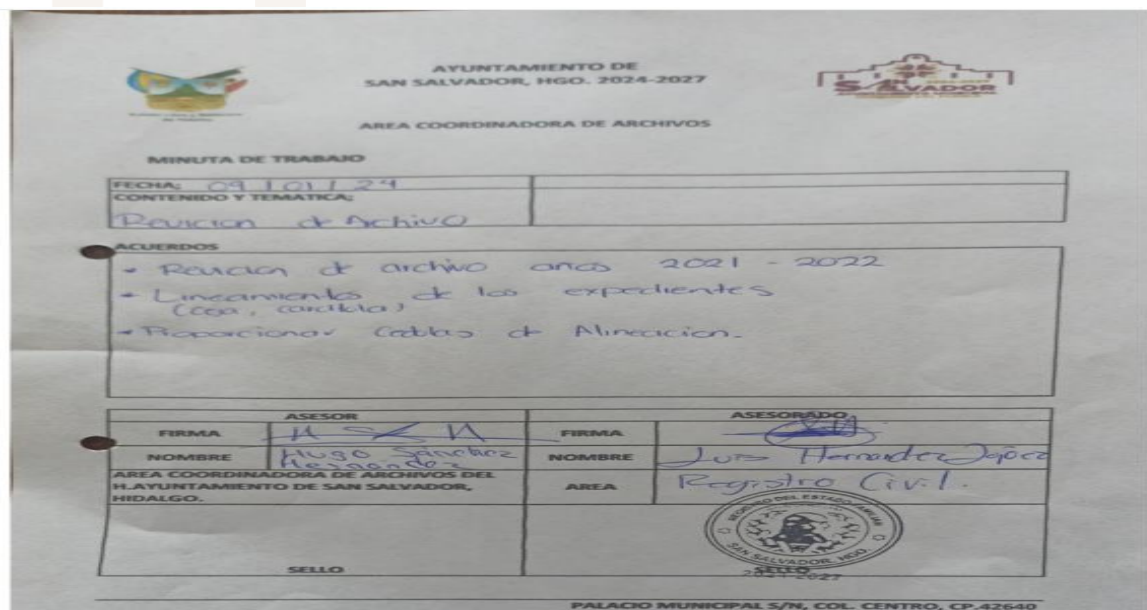 AYUNTAMIENTO DE
SAN SALVADOR, HGO. 2024-2027
SAN SALVADOR
AREA COORDINADORA DE ARCHIVOS
MINUTA DE TRABAJO
FECHA; 09 / 01 / 24
CONTENIDO Y TEMATICA;
Revicion de Archivo
ACUERDOS
- Revicion de archivo años 2021 - 2022
- Lineamientos de los expedientes
(ceja, caratula)
- Proporcionar de Alineacion.
ASESOR ASESORADO
FIRMA FIRMA
NOMBRE Hugo Sánchez Hernández NOMBRE Luis Hernandez
AREA COORDINADORA DE ARCHIVOS DEL
H.AYUNTAMIENTO DE SAN SALVADOR,
HIDALGO.
AREA Registro Civil.
SAN SALVADOR, HGO.
SELLO SELLO
2024-2027
PALACIO MUNICIPAL S/N, COL. CENTRO, CP.42640